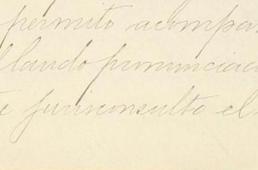 permito acompa
llando pronunciad
e jurisconsulto el